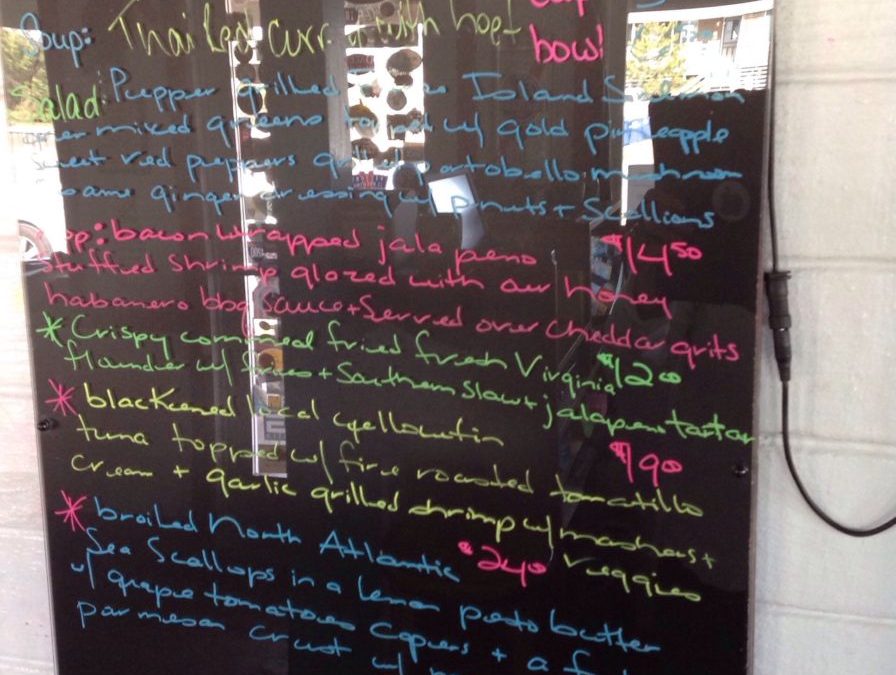 cup
Soup: Thai Red curry with beef
bowl
Salad: Pepper grilled Island Salmon
over mixed greens topped w/ gold pineapple
sweet red peppers grilled portobello mushroom
sesame ginger dressing w/ pnuts + Scallions
App: bacon wrapped jalapeno $14.50
stuffed shrimp glazed with our honey
habanero bbq sauce + served over cheddar grits
* Crispy cornmeal fried fresh Virginia $12.00
flounder w/ fries + Southern Slaw + jalapeno tartar
* blackened local yellowfin
tuna topped w/ fire roasted tomatillo $19.00
cream + garlic grilled shrimp w/ mashers +
veggies
* broiled North Atlantic $24.00
Sea Scallops in a lemon pesto butter
w/ grape tomatoes capers + a
parmesan crust w/